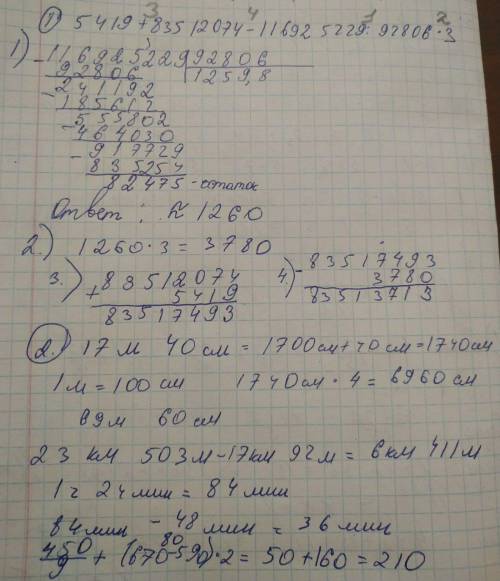 1) 5419 + 83512074 - 116925229 : 92806 · 3
3 4 1 2
1) - 116925229 | 92806
92806 | 1259,8
- 241192
185612
- 555802
464030
- 917729
835254
82475 - остаток
Ответ : ≈ 1260
2.) 1260 · 3 = 3780
3.) + 83512074 4.) - 83517493
5419 3780
83517493 83513713
2. 17 м 40 см = 1700 см + 40 см = 1740 см
1 м = 100 см 1740 см · 4 = 6960 см
69 м 60 см
23 км 503 м - 17 км 92 м = 6 км 411 м
1 ч 24 мин = 84 мин
84 мин - 48 мин = 36 мин
80
450/9 + (670-590) · 2 = 50 + 160 = 210